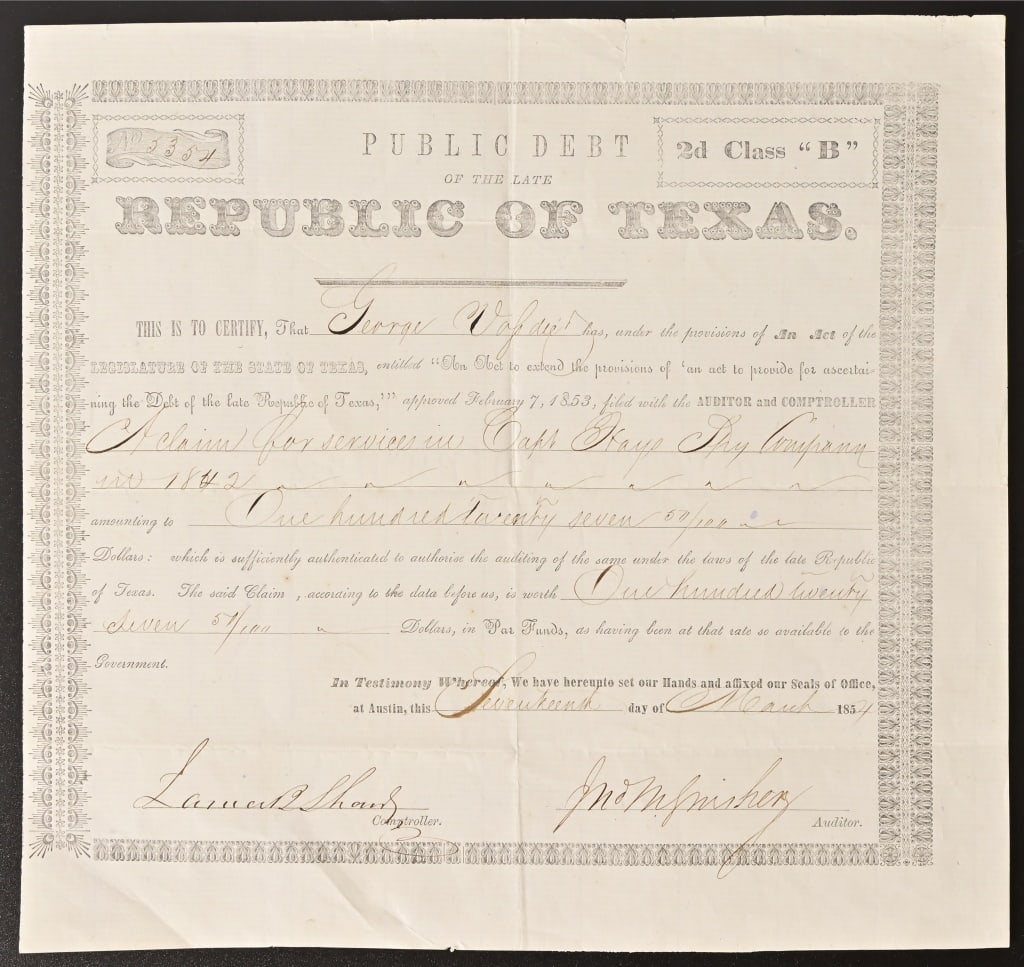 No 5354
PUBLIC DEBT
2d Class "B"
OF THE LATE
REPUBLIC OF TEXAS.
THIS IS TO CERTIFY, That George has, under the provisions of An Act of the
LEGISLATURE OF THE STATE OF TEXAS, entitled "An Act to extend the provisions of 'an act to provide for ascertai-
ning the Debt of the late Republic of Texas,'" approved February 7, 1853, filed with the AUDITOR and COMPTROLLER
A claim for services in Capt Hays Company
in 1842
amounting to One hundred twenty seven 50/100
Dollars: which is sufficiently authenticated to authorise the auditing of the same under the laws of the late Republic
of Texas. The said Claim, according to the data before us, is worth One hundred twenty
seven 50/100 Dollars, in Par Funds, as having been at that rate so available to the
Government.
In Testimony Whereof, We have hereunto set our Hands and affixed our Seals of Office,
at Austin, this Seventeenth day of March 1854
James B Shaw
Comptroller.
Auditor.